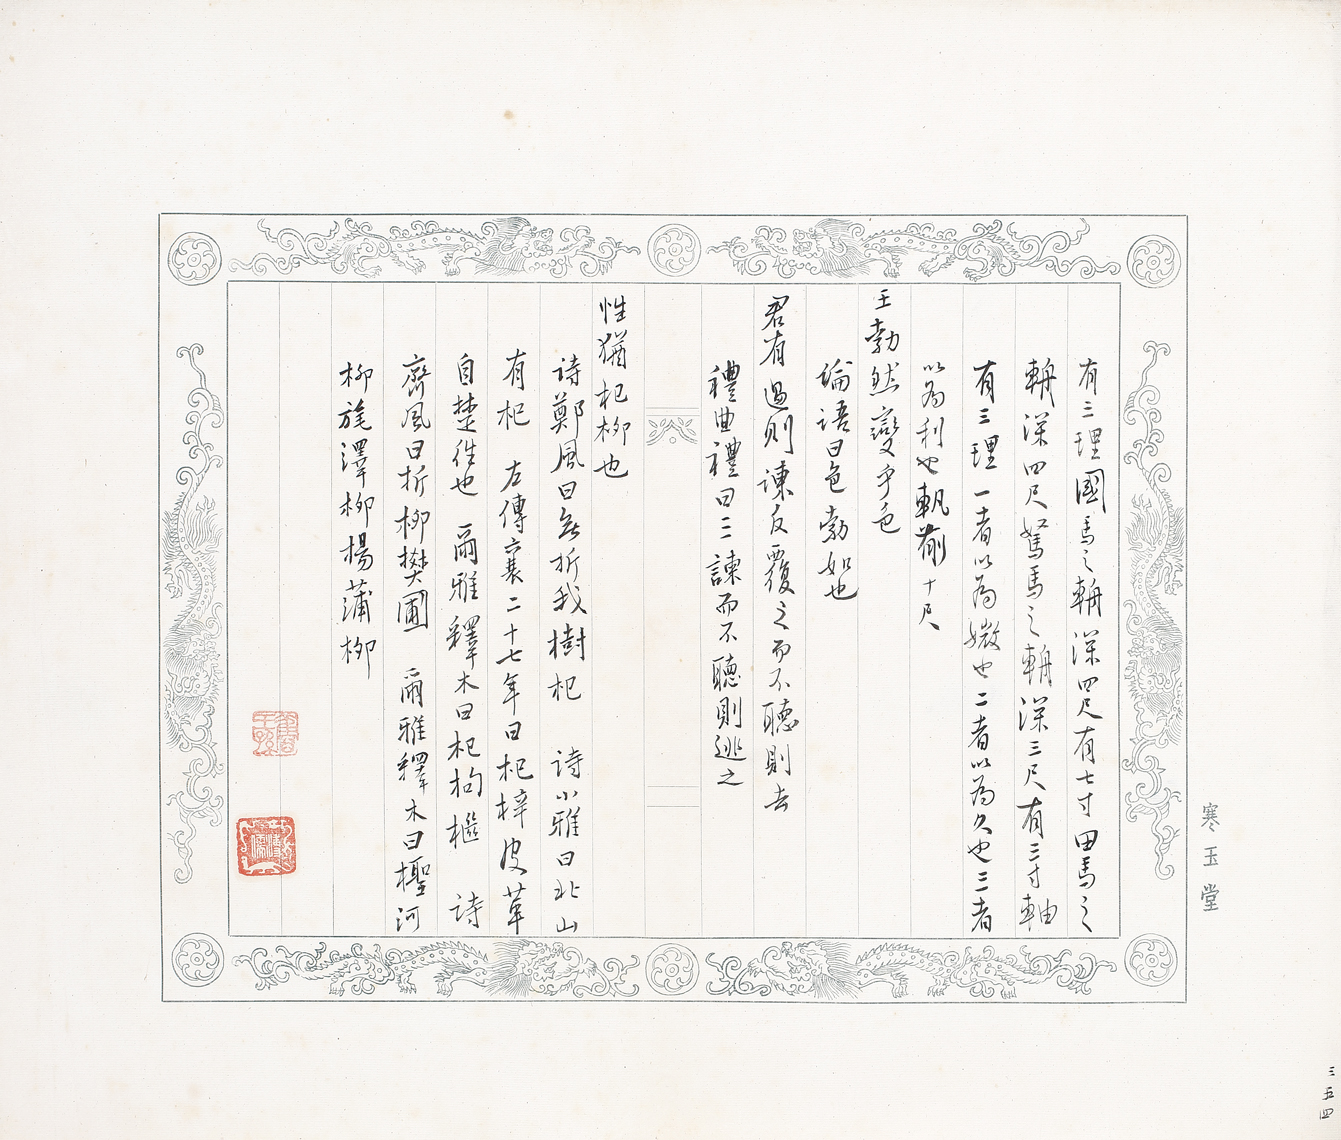 有三理國馬之輈深四尺有七寸田馬之
輈深四尺駑馬之輈深三尺有三寸軸
有三理一者以為媺也二者以為久也三者
以為利也軓前十尺
王勃然變乎色
論語曰色勃如也
君有過則諫反覆之而不聽則去
禮曲禮曰三諫而不聽則逃之
性猶杞柳也
詩鄭風曰無折我樹杞　詩小雅曰北山
有杞　左傳襄二十七年曰杞梓皮革
自楚往也　爾雅釋木曰杞枸檵　詩
齊風曰折柳樊圃　爾雅釋木曰檉河
柳旄澤柳楊蒲柳
舊王孫
溥儒
寒玉堂
三五四